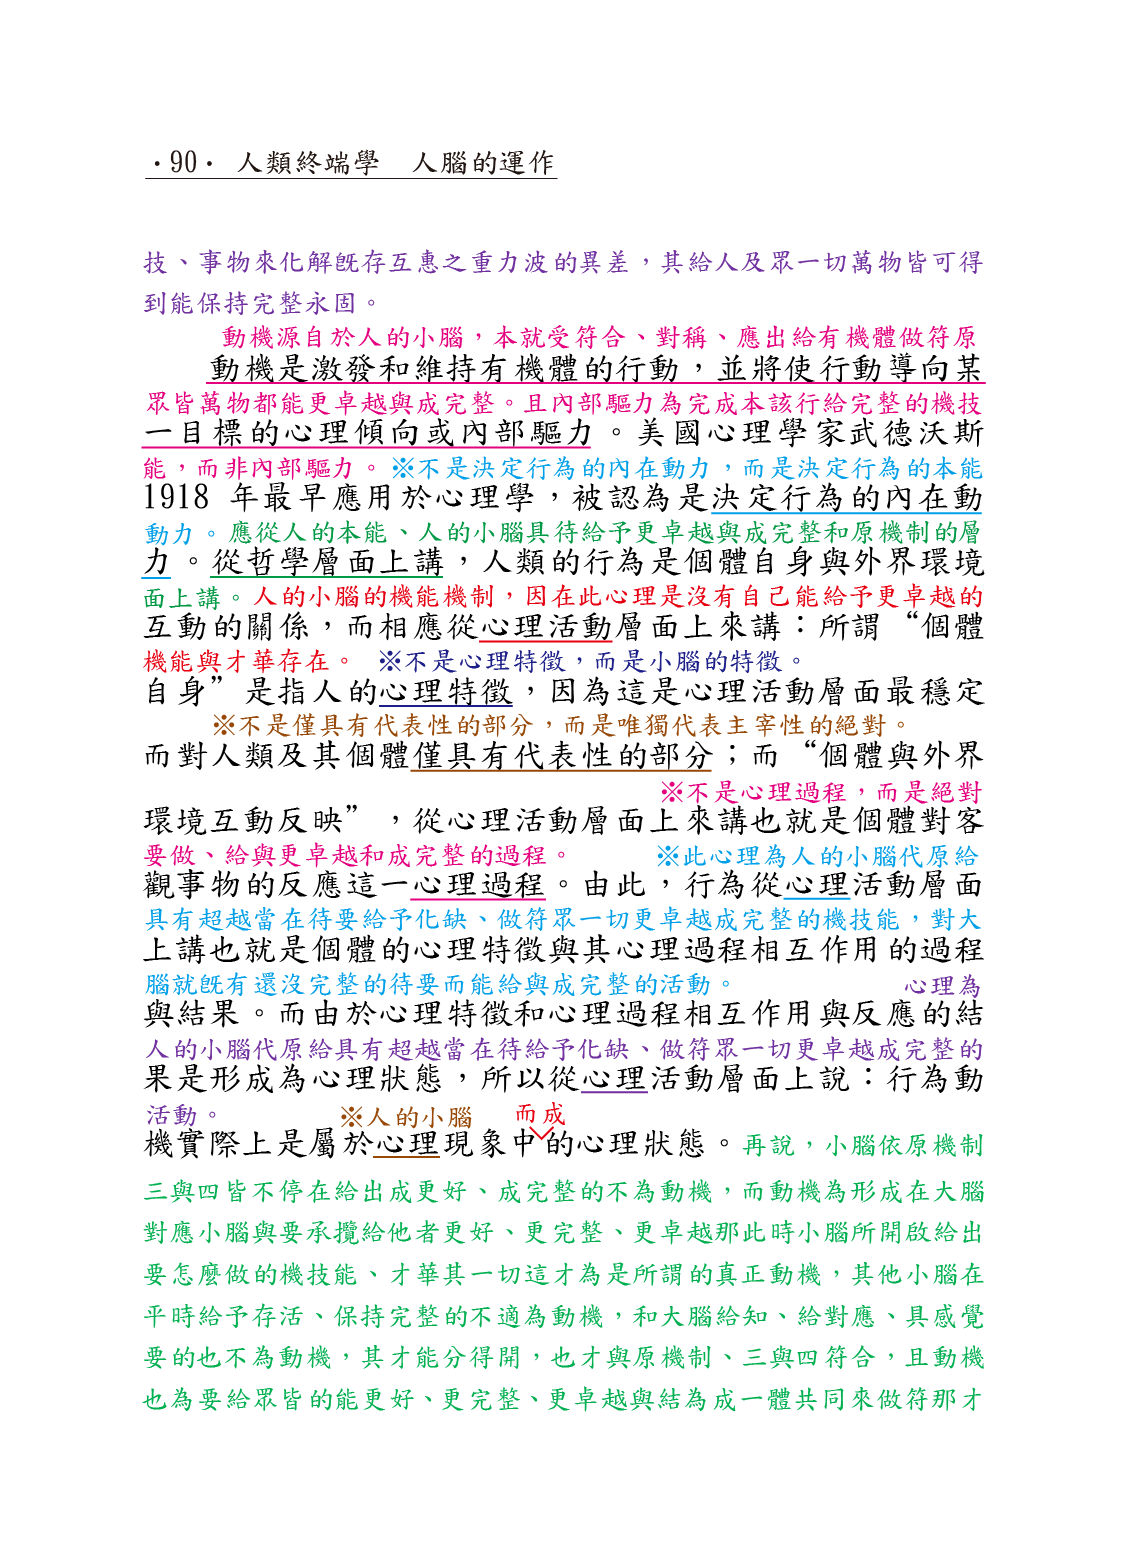 ·90· 人類終端學　人腦的運作
技、事物來化解既存互惠之重力波的異差，其給人及眾一切萬物皆可得
到能保持完整永固。
動機源自於人的小腦，本就受符合、對稱、應出給有機體做符原
動機是激發和維持有機體的行動，並將使行動導向某
眾皆萬物都能更卓越與成完整。且內部驅力為完成本該行給完整的機技
一目標的心理傾向或內部驅力。美國心理學家武德沃斯
能，而非內部驅力。※不是決定行為的內在動力，而是決定行為的本能
1918 年最早應用於心理學，被認為是決定行為的內在動
動力。應從人的本能、人的小腦具待給予更卓越與成完整和原機制的層
力。從哲學層面上講，人類的行為是個體自身與外界環境
面上講。人的小腦的機能機制，因在此心理是沒有自己能給予更卓越的
互動的關係，而相應從心理活動層面上來講：所謂“個體
機能與才華存在。　※不是心理特徵，而是小腦的特徵。
自身”是指人的心理特徵，因為這是心理活動層面最穩定
※不是僅具有代表性的部分，而是唯獨代表主宰性的絕對。
而對人類及其個體僅具有代表性的部分；而“個體與外界
※不是心理過程，而是絕對
環境互動反映”，從心理活動層面上來講也就是個體對客
要做、給與更卓越和成完整的過程。　※此心理為人的小腦代原給
觀事物的反應這一心理過程。由此，行為從心理活動層面
具有超越當在待要給予化缺、做符眾一切更卓越成完整的機技能，對大
上講也就是個體的心理特徵與其心理過程相互作用的過程
腦就既有還沒完整的待要而能給與成完整的活動。　心理為
與結果。而由於心理特徵和心理過程相互作用與反應的結
人的小腦代原給具有超越當在待給予化缺、做符眾一切更卓越成完整的
果是形成為心理狀態，所以從心理活動層面上說：行為動
活動。　※人的小腦　而成
機實際上是屬於心理現象中的心理狀態。再說，小腦依原機制
三與四皆不停在給出成更好、成完整的不為動機，而動機為形成在大腦
對應小腦與要承攬給他者更好、更完整、更卓越那此時小腦所開啟給出
要怎麼做的機技能、才華其一切這才為是所謂的真正動機，其他小腦在
平時給予存活、保持完整的不適為動機，和大腦給知、給對應、具感覺
要的也不為動機，其才能分得開，也才與原機制、三與四符合，且動機
也為要給眾皆的能更好、更完整、更卓越與結為成一體共同來做符那才